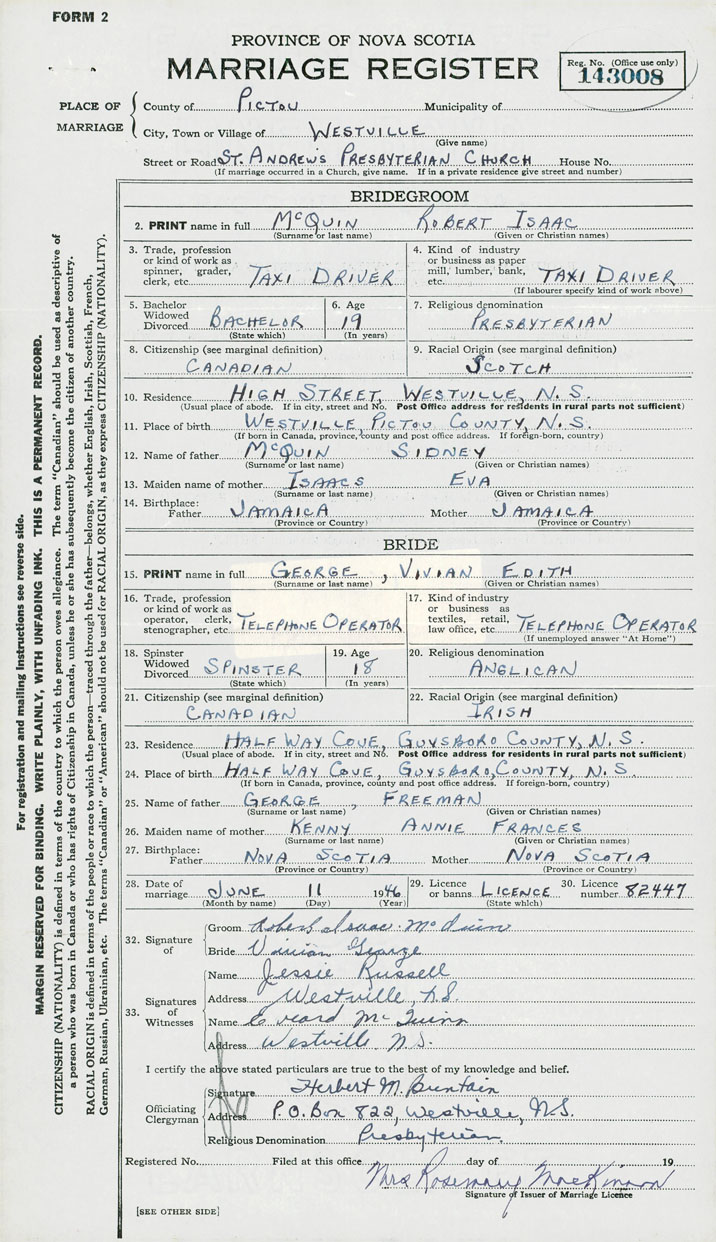 FORM 2
PROVINCE OF NOVA SCOTIA
MARRIAGE REGISTER
Reg. No. (Office use only)
143008
PLACE OF MARRIAGE
County of PICTOU Municipality of
City, Town or Village of WESTVILLE
(Give name)
Street or Road ST. ANDREWS PRESBYTERIAN CHURCH House No.
(If marriage occurred in a Church, give name. If in a private residence give street and number)
BRIDEGROOM
2. PRINT name in full McQUIN ROBERT ISAAC
(Surname or last name) (Given or Christian names)
3. Trade, profession or kind of work as spinner, grader, clerk, etc. TAXI DRIVER
4. Kind of industry or business as paper mill, lumber, bank, etc. TAXI DRIVER
(If labourer specify kind of work above)
5. Bachelor Widowed Divorced BACHELOR
(State which)
6. Age 19
(In years)
7. Religious denomination
PRESBYTERIAN
8. Citizenship (see marginal definition)
CANADIAN
9. Racial Origin (see marginal definition)
SCOTCH
10. Residence HIGH STREET, WESTVILLE, N. S.
(Usual place of abode. If in city, street and No. Post Office address for residents in rural parts not sufficient)
11. Place of birth WESTVILLE, PICTOU COUNTY, N. S.
(If born in Canada, province, county and post office address. If foreign-born, country)
12. Name of father McQUIN SIDNEY
(Surname or last name) (Given or Christian names)
13. Maiden name of mother ISAACS EVA
(Surname or last name) (Given or Christian names)
14. Birthplace: Father JAMAICA Mother JAMAICA
(Province or Country) (Province or Country)
BRIDE
15. PRINT name in full GEORGE, VIVIAN EDITH
(Surname or last name) (Given or Christian names)
16. Trade, profession or kind of work as operator, clerk, stenographer, etc. TELEPHONE OPERATOR
17. Kind of industry or business as textiles, retail, law office, etc. TELEPHONE OPERATOR
(If unemployed answer "At Home")
18. Spinster Widowed Divorced SPINSTER
(State which)
19. Age 18
(In years)
20. Religious denomination
ANGLICAN
21. Citizenship (see marginal definition)
CANADIAN
22. Racial Origin (see marginal definition)
IRISH
23. Residence HALF WAY COVE, GUYSBORO COUNTY, N. S.
(Usual place of abode. If in city, street and No. Post Office address for residents in rural parts not sufficient)
24. Place of birth HALF WAY COVE, GUYSBORO, COUNTY, N. S.
(If born in Canada, province, county and post office address. If foreign-born, country)
25. Name of father GEORGE, FREEMAN
(Surname or last name) (Given or Christian names)
26. Maiden name of mother KENNY ANNIE FRANCES
(Surname or last name) (Given or Christian names)
27. Birthplace: Father NOVA SCOTIA Mother NOVA SCOTIA
(Province or Country) (Province or Country)
28. Date of marriage JUNE 11 1946
(Month by name) (Day) (Year)
29. Licence or banns LICENCE
(State which)
30. Licence number 82447
32. Signature of
Groom Robert Isaac McQuinn
Bride Vivian George
33. Signatures of Witnesses
Name Jessie Russell
Address Westville, N.S.
Name McQuinn
Address Westville N.S.
I certify the above stated particulars are true to the best of my knowledge and belief.
Officiating Clergyman
Signature Herbert M. Buntain
Address P.O. Box 822, Westville, N.S.
Religious Denomination Presbyterian.
Registered No. Filed at this office day of 19
Mrs Rosemary MacKinnon
Signature of Issuer of Marriage Licence
[SEE OTHER SIDE]
For registration and mailing instructions see reverse side.
MARGIN RESERVED FOR BINDING. WRITE PLAINLY, WITH UNFADING INK. THIS IS A PERMANENT RECORD.
CITIZENSHIP (NATIONALITY) is defined in terms of the country to which the person owes allegiance. The term "Canadian" should be used as descriptive of
a person who was born in Canada or who has rights of Citizenship in Canada, unless he or she has subsequently become the citizen of another country.
RACIAL ORIGIN is defined in terms of the people or race to which the person—traced through the father—belongs, whether English, Irish, Scottish, French,
German, Russian, Ukrainian, etc. The terms "Canadian" or "American" should not be used for RACIAL ORIGIN, as they express CITIZENSHIP (NATIONALITY).